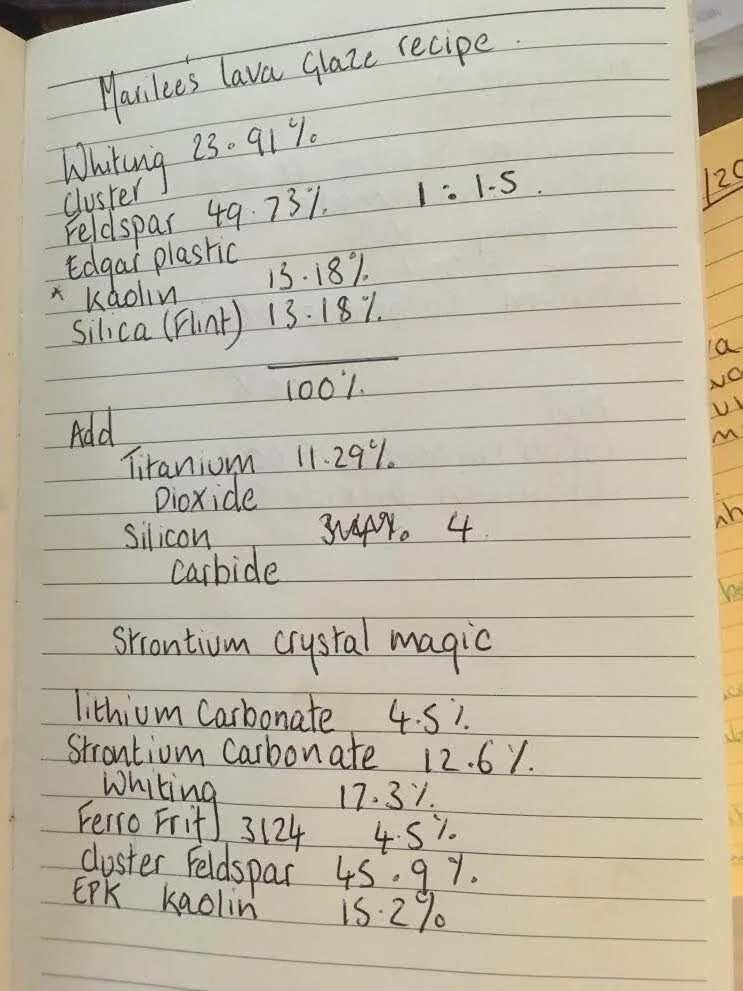 Marilee's lava Glaze recipe.
Whiting 23.91%
Cluster
Feldspar 49.73% 1:1.5.
Edgar plastic
* Kaolin 13.18%
Silica (Flint) 13.18%
100%
Add
Titanium 11.29%
Dioxide
Silicon 4
Carbide
Strontium crystal magic
lithium Carbonate 4.5%
Strontium Carbonate 12.6%
Whiting 17.3%
Ferro Frit 3124 4.5%
cluster Feldspar 45.9%
EPK Kaolin 15.2%